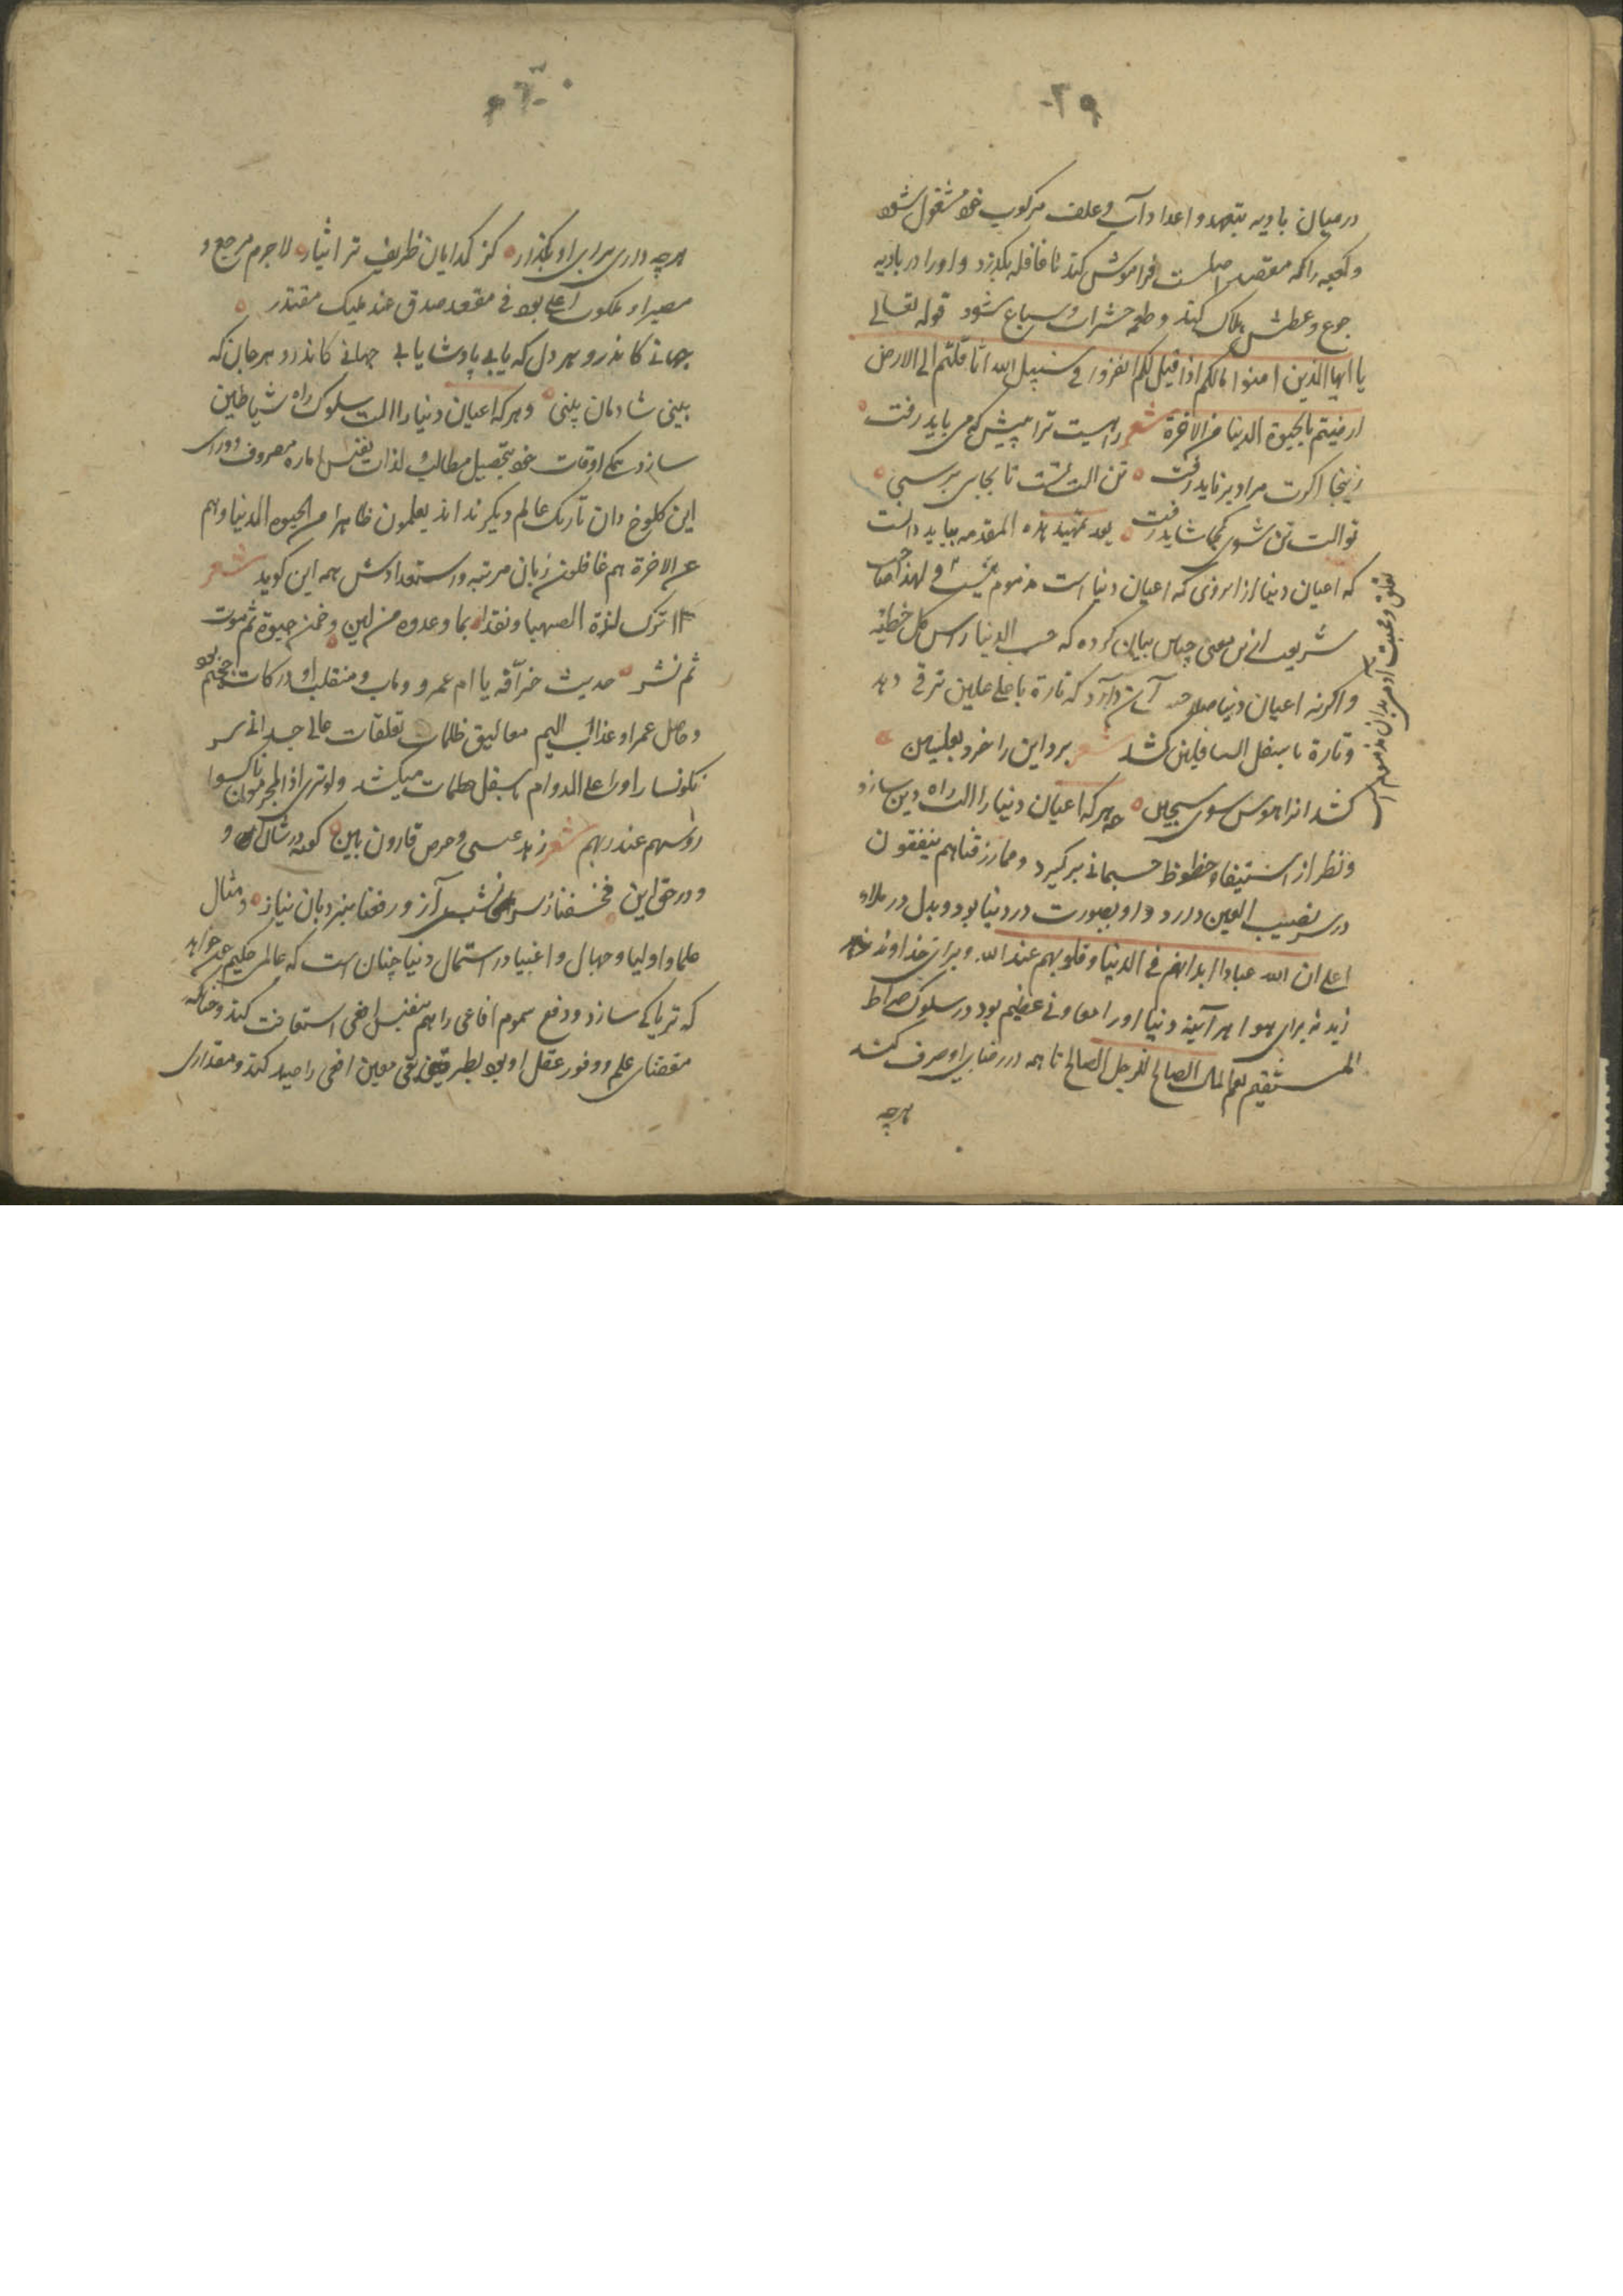 ۲۹
در میان بادیه بتعهد و اعداد آب و علف مرکوب خود مشغول شود
و کعبه را که مقصد اصلیست فراموش کند تا قافله بگذرد و او را در بادیه
جوع و عطش هلاک کند و طعمه حشرات و سباع شود قوله تعالی
یا ایها الذین امنوا مالکم اذا قیل لکم انفروا فی سبیل الله اثاقلتم الی الارض
ارضیتم بالحیوة الدنیا من الاخرة شعر راهیست ترا پیش که می باید رفت
زینجا اکرت مراد بر ناید رفت تن الت تست تا بجای برسی
تو الت تن شوی کجا شاید رفت بعد تمهید هذه المقدمه بباید دانست
که اعیان دنیا از انروی که اعیان دنیا است مذموم نیست و لهذا صاحب
شریعت ازین معنی چنین بیان کرده که حب الدنیا راس کل خطیئة
و اکرنه اعیان دنیا صلاحیت آن دارد که تارة باعلی علیین ترقی دهد
و تارة باسفل السافلین کشد شعر برد این را خرد بعلیین
کشد انرا هوس سوی سجین هرکه اعیان دنیا را الت راه دین سازد
و نظر از استیفاء حظوظ جسمانی برگیرد و مما رزقناهم ینفقون
در سر نصیب العین دارد و او بصورت در دنیا بود و بدل در ملاء
اعلی ان لله عبادا ابدانهم فی الدنیا و قلوبهم عند الله و برای خداوند خواهد
زید نه برای هوا هر آینه دنیا او را معاونی عظیم بود در سلوک صراط
المستقیم نعم المال الصالح للرجل الصالح تا همه در رضای او صرف کند
هرچه
تعلق و محبت آدمی بدان مذموم است
هرچه داری برای او بگذار کز کدایان ظریف تر ایثار لاجرم مرجع و
مصیر او ملکوت اعلی بود فی مقعد صدق عند ملیک مقتدر
جهانی کاندرو هر دل که یابی پادشا یابی جهانی کاندرو هر جان که
بینی شادمان بینی و هرکه اعیان دنیا را الت سلوک راه شیاطین
سازد همگی اوقات خود بتحصیل مطالب و لذات نفس اماره مصروف دارد و ورای
این کلوخ دان تاریک عالم دیکر نداند یعلمون ظاهرا من الحیوه الدنیا و هم
عن الاخرة هم غافلون زبان مرتبه و استعدادش همه این کوید شعر
أ اترک لذة الصهبا و نقدا بما وعدوه من لبن و خمر حیوة ثم موت
ثم نشر حدیث خرافه یا ام عمرو و ماب و منقلب او درکات جهنم بود
و حاصل عمر او عذاب الیم معالیق ظلمات تعلقات عالی جسدانی سر
نکونسار او را علی الدوام باسفل ظلمات میکشد و لو تری اذ المجرمون ناکسوا
رؤسهم عند ربهم شعر زهد عیسی و حرص قارون بین کفته در شان آن و
و در حق این فخسفنا ز سرنشیب آز و رفعنا بنردبان نیاز و مثال
علما و اولیا و جهال و اغنیا در استعمال دنیا چنان است که عالمی حکیم می خواهد
که تریاکی سازد و دفع سموم افاعی را هم بنفس افعی استعانت کند و چنانکه
مقتضای علم و وفور عقل او بود بطریقی معین افعی را صید کند و مقداری